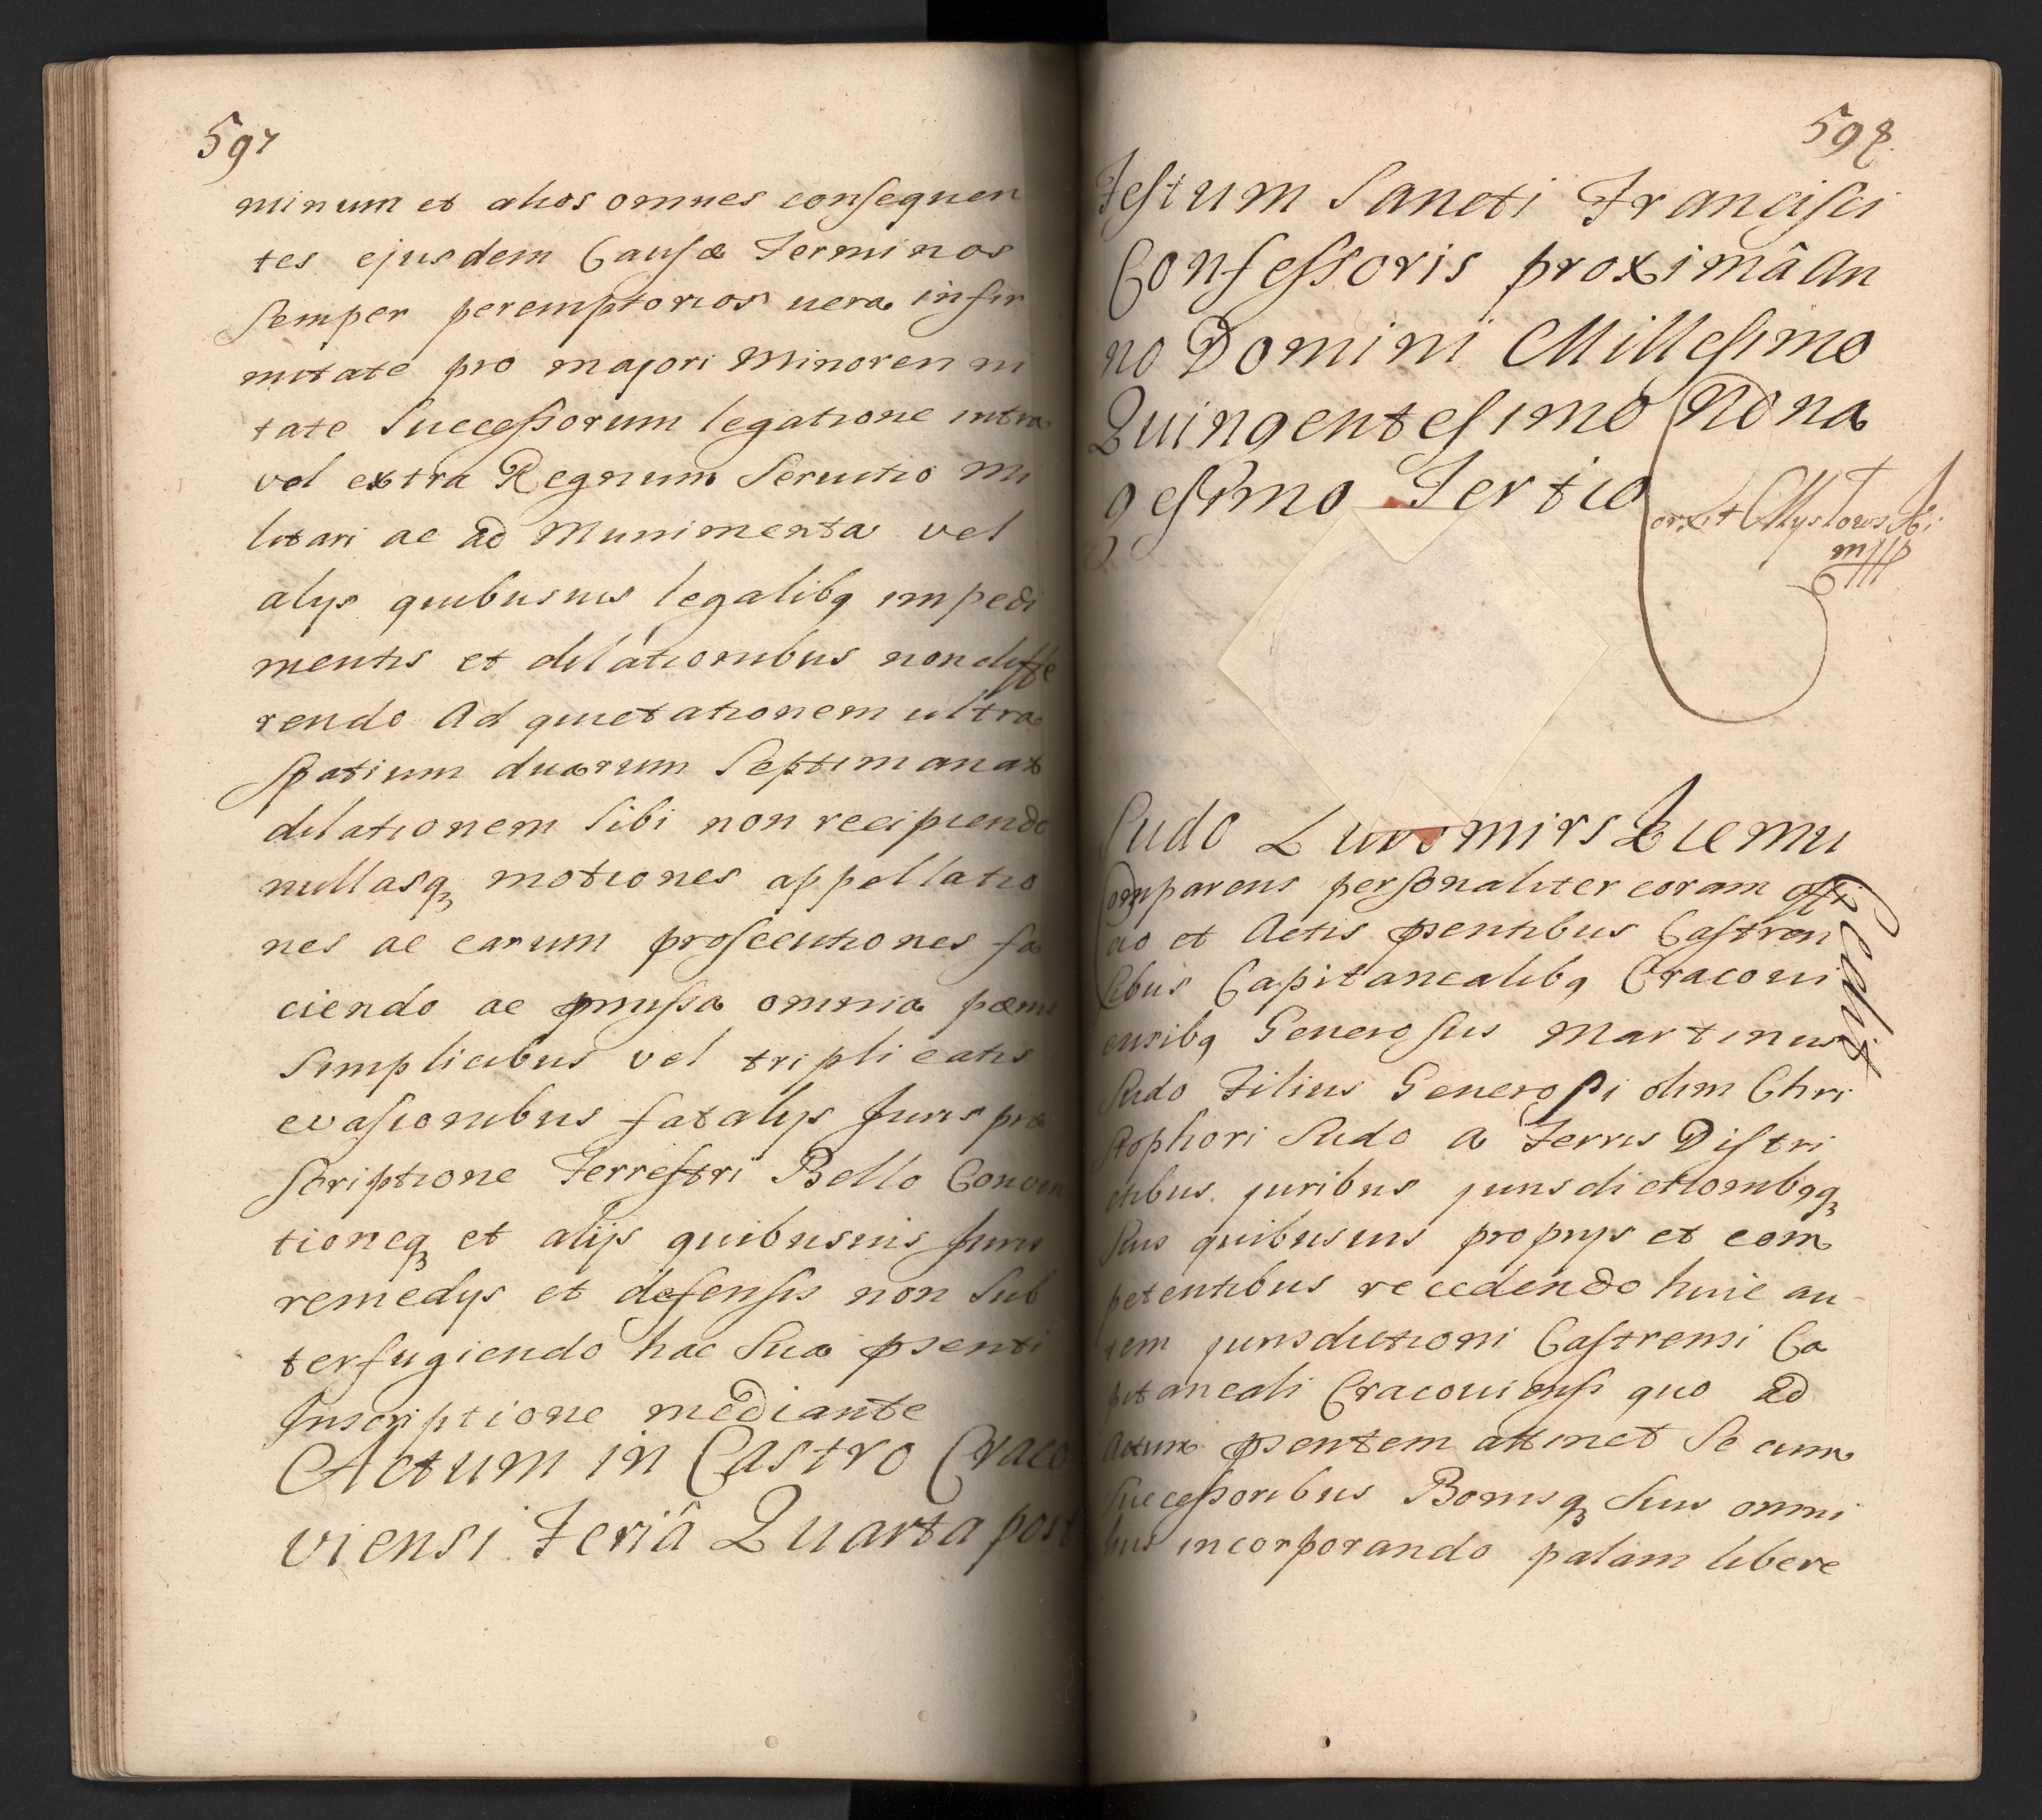 597
minum et alios omnes consequen
tes ejusdem Causæ Terminos
Semper peremptorios vera infir
mitate pro majori Minoren ni
tate Successorum legatione intra
vel extra Regnum Servitio Mi
litari ac ad Munimenta vel
alys quibusvis legalibq impedi
mentis et dilationibus non diffe
rendo Ad quietationem ultra
Spatium duarum Septimanar
dilationem Sibi non recipiendo
nullasq motiones appellatio
nes ac earum prosecutiones fa
ciendo ac pmissa omnia pænis
Simplicibus vel triplicatis
evasionibus fatalys Juris præ
scriptione Terrestri Bello Conven
tioneq et alijs quibusvis Juris
remedys et defensis non Sub
terfugiendo hac Sua psenti
Inscriptione mediante
Actum in Castro Craco
viensi Feriâ Quarta post
598
Festum Sancti Francisci
Confessoris proximâ An
no Domini Millesimo
Quingentesimo Nona
gesimo Tertio
orxit Mystowski
mpp
Sudo Luvomirskiemu
Cedit
Comparens personaliter coram offi
cio et Actis psentibus Castren
sibus Capitanealibq Cracovi
ensibq Generosus Martinus
Sudo Filius Generosi olim Chri
stophori Sudo a Terris Distri
ctibus juribus jurisdictionibqq
Suis quibusvis propriys et com
petentibus recedendo huic au
tem jurisdictioni Castrensi Ca
pitaneali Cracoviensi quo ad
Actum psentem attinet Se cum
Successoribus Bonisq Suis omni
bus incorporando palam libere